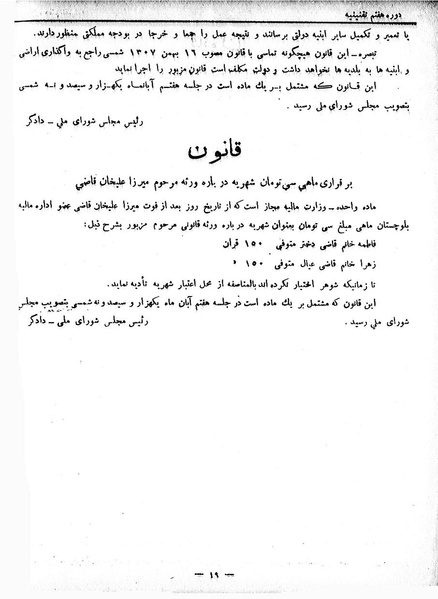 دوره هفتم تقنینیه
یا تعمیر و تکمیل سایر ابنیه دولتی برسانند و نتیجه عمل را جمعا و خرجا در بودجه مملکتی منظور دارند.
تبصره ـ این قانون هیچگونه تماسی با قانون مصوب ۱۶ بهمن ۱۳۰۷ شمسی راجع به واگذاری اراضی
و ابنیه ها به بلدیه ها نخواهد داشت و دولت مکلف است قانون مزبور را اجرا نماید
این قانون که مشتمل بر یك ماده است در جلسه هفتم آبانماه یکهزار و سیصد و نه شمسی
بتصویب مجلس شورای ملی رسید .
رئیس مجلس شورای ملی ـ دادگر
قانون
برقراری ماهی سی تومان شهریه در باره ورثه مرحوم میرزا علیخان قاضی
ماده واحده ـ وزارت مالیه مجاز است که از تاریخ روز بعد از فوت میرزا علیخان قاضی عضو اداره مالیه
بلوچستان ماهی مبلغ سی تومان بعنوان شهریه در باره ورثه قانونی مرحوم مزبور بشرح ذیل:
فاطمه خانم قاضی دختر متوفی ۱۵۰ قران
زهرا خانم قاضی عیال متوفی ۱۵۰ »
تا زمانیکه شوهر اختیار نکرده اند بالمناصفه از محل اعتبار شهریه تأدیه نماید.
این قانون که مشتمل بر یك ماده است در جلسه هفتم آبان ماه یکهزار و سیصد و نه شمسی بتصویب مجلس
شورای ملی رسید .
رئیس مجلس شورای ملی ـ دادگر
— ۱۹ —